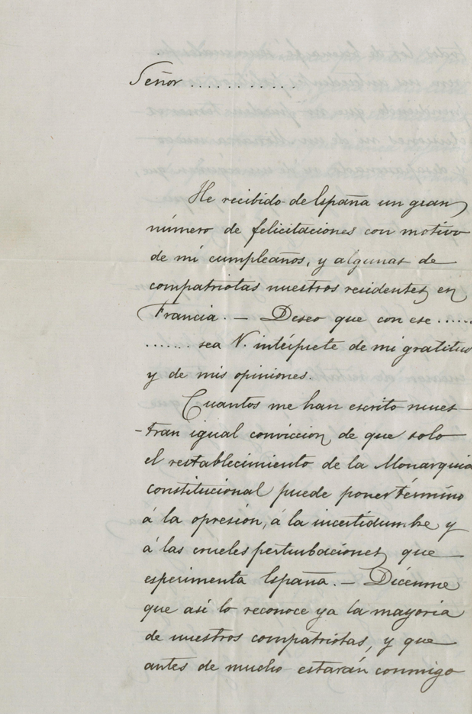 Señor ...........
He recibido de España un gran
número de felicitaciones con motivo
de mi cumpleaños, y algunas de
compatriotas nuestros residentes en
Francia. — Deseo que con ese ......
....... sea V. intérprete de mi gratitud
y de mis opiniones.
Cuantos me han escrito mues
-tran igual conviccion de que solo
el restablecimiento de la Monarquia
constitucional puede poner término
á la opresión, á la incertidumbre y
á las crueles perturbaciones que
esperimenta España. — Dícenme
que así lo reconoce ya la mayoria
de nuestros compatriotas, y que
antes de mucho estarán conmigo